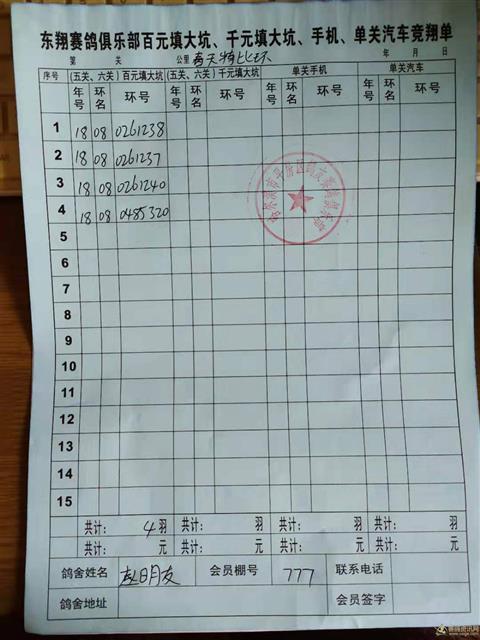 东翔赛鸽俱乐部百元填大坑、千元填大坑、手机、单关汽车竞翔单
第 关 公里 春天特比环 年 月 日
序号 (五关、六关)百元填大坑 (五关、六关)千元填大坑 单关手机 单关汽车
年号 环名 环号 年号 环名 环号 年号 环名 环号 年号 环名 环号
1 18 08 0261238
2 18 08 0261237
3 18 08 0261240
4 18 08 0485320
5
6
7
8
9
10
11
12
13
14
15
共计: 4 羽 共计: 羽 共计: 羽 共计: 羽
共计: 元 共计: 元 共计: 元 共计: 元
鸽舍姓名 赵明友 会员棚号 777 联系电话
鸽舍地址 会员签字